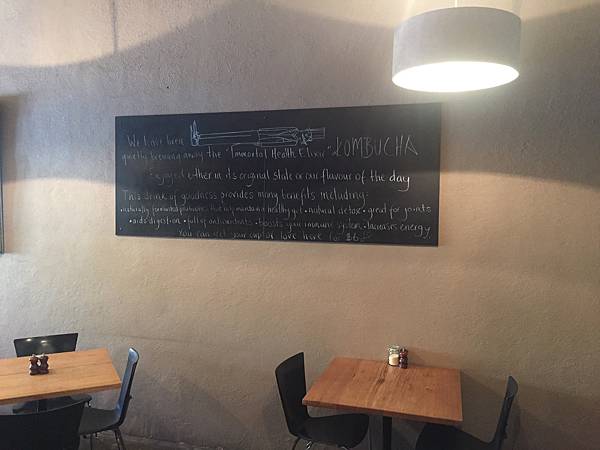 We have been
quietly brewing away the "Immortal Health Elixir" KOMBUCHA
Enjoyed either in its original state or our flavour of the day
This drink of goodness provides many benefits including:
naturally fermented probiotics that help maintain a healthy gut • natural detox • great for joints
• aids digestion • full of antioxidants • boosts your immune system • Increases energy
You can get your cup of love here for $6